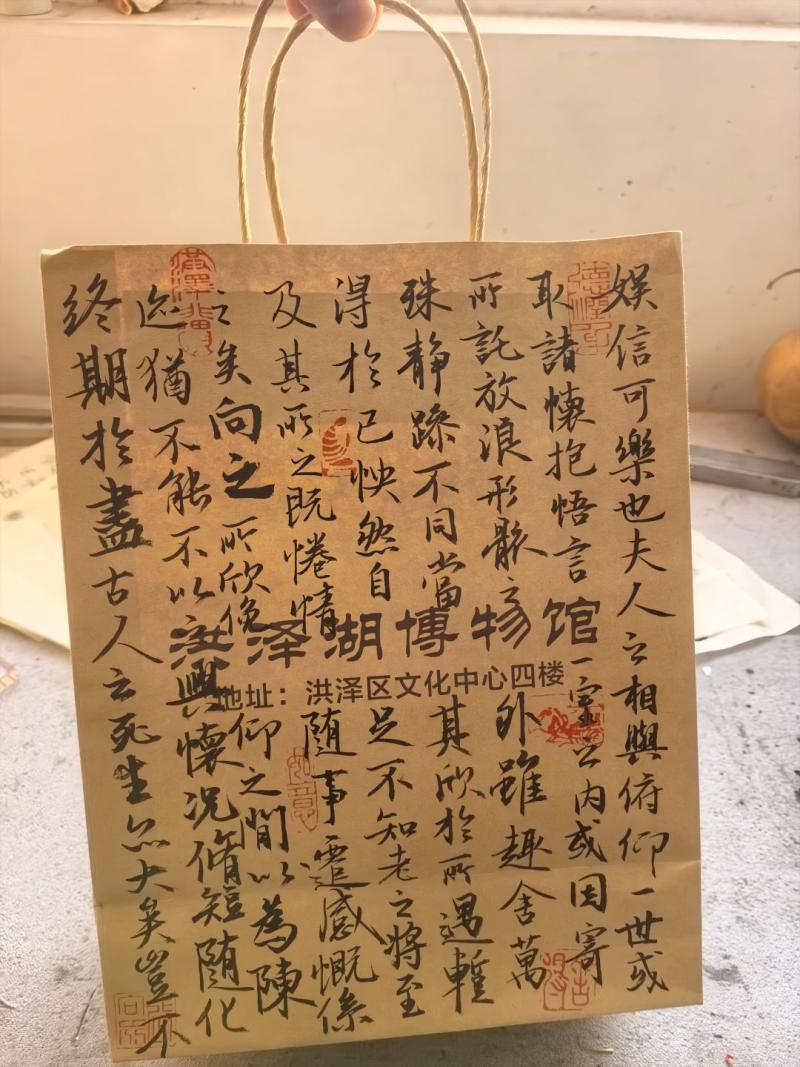 娛信可樂也夫人之相與俯仰一世或
取諸懷抱悟言一室之內或因寄
所託放浪形骸之外雖趣舍萬
殊靜躁不同當其欣於所遇暫
得於己怏然自足不知老之將至
及其所之既惓情隨事遷感慨係
之矣向之所欣俛仰之間以為陳
迹猶不能不以興懷況脩短隨化
終期於盡古人云死生亦大矣豈不
洪泽湖博物馆
地址：洪泽区文化中心四楼
如意